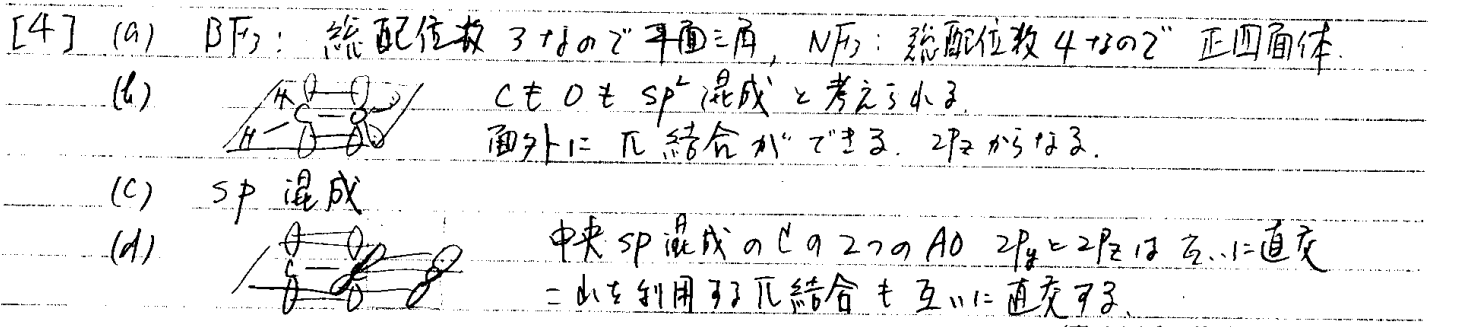 [4] (a) BF₃: 総配位数 3 なので 平面三角, NF₃: 総配位数 4 なので 正四面体.
(b) H H C O CもOも sp² 混成 と考えられる.
面外に π 結合が できる. 2Pz からなる.
(c) sp 混成
(d) C 中央 sp 混成の C の 2つの AO 2Py と 2Pz は 互いに直交
これを利用する π 結合も 互いに 直交する.